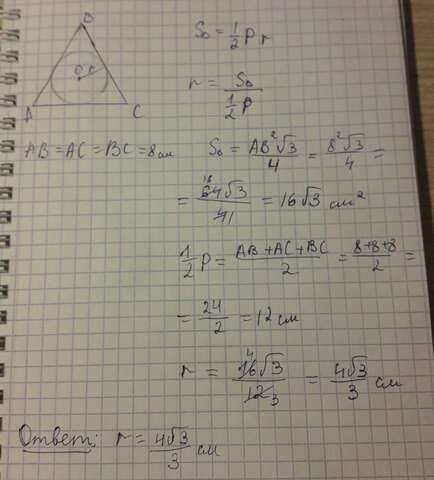 B
O r
A C
S₀ = 1/2 P r
r = S₀ / (1/2 P)
AB = AC = BC = 8 см
S₀ = AB²√3/4 = 8²√3/4 =
= 64√3/4 = 16√3 см²
1/2 P = (AB + AC + BC)/2 = (8+8+8)/2 =
= 24/2 = 12 см
r = 16√3/12 = 4√3/3 см
Ответ: r = 4√3/3 см